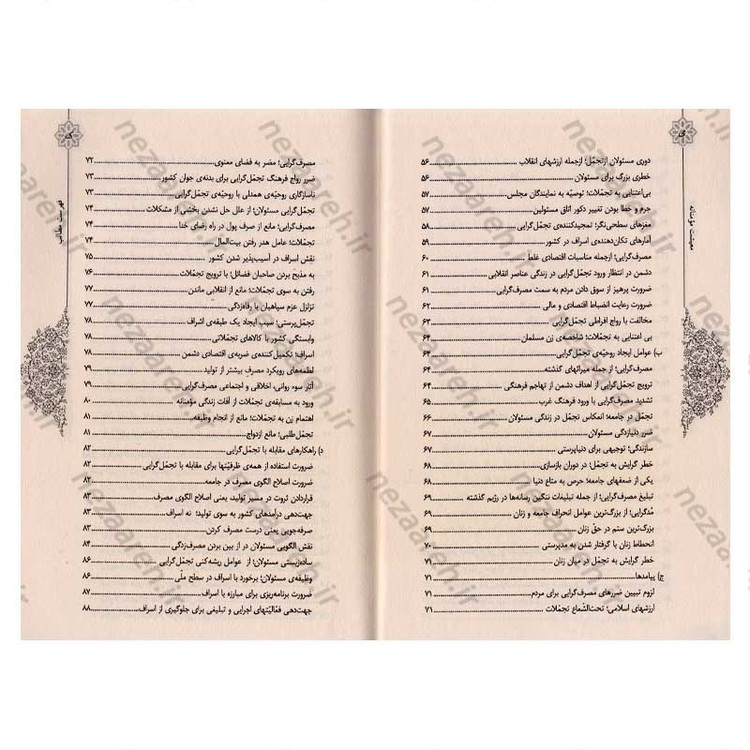 معیشت مؤمنانه
دوری مسئولان ازتجمّل؛ ازجمله ارزشهای انقلاب ۵۶
خطری بزرگ برای مسئولان ۵۶
بی‌اعتنایی به تجمّلات؛ توصیّه به نمایندگان مجلس ۵۷
جرم و خطا بودن تغییر دکور اتاق مسئولین ۵۷
مغزهای سطحی‌نگر؛ تمجیدکننده‌ی تجمّل‌گرایی ۵۸
آمارهای تکان‌دهنده‌ی اسراف در کشور ۵۹
مصرف‌گرایی؛ ازجمله مناسبات اقتصادی غلط ۶۰
دشمن در انتظار ورود تجمّل‌گرایی در زندگی عناصر انقلابی ۶۱
ضرورت پرهیز از سوق دادن مردم به سمت مصرف‌گرایی ۶۱
ضرورت رعایت انضباط اقتصادی و مالی ۶۲
مخالفت با رواج افراطی تجمّل‌گرایی ۶۳
بی اعتنایی به تجمّلات؛ شاخصه‌ی زن مسلمان ۶۴
ب) عوامل ایجاد روحیّه‌ی تجمّل‌گرایی ۶۴
مصرف‌گرایی؛ از جمله میراثهای گذشته ۶۴
ترویج تجمّل‌گرایی از اهداف دشمن از تهاجم فرهنگی ۶۴
تشدید مصرف‌گرایی با ورود فرهنگ غرب ۶۵
تجمّل در جامعه؛ انعکاس تجمّل در زندگی مسئولان ۶۶
ضرر دنیازدگی مسئولان ۶۷
سازندگی؛ توجیهی برای دنیاپرستی ۶۷
خطر گرایش به تجمّل؛ در دوران بازسازی ۶۸
یکی از ضعفهای جامعه؛ حرص به متاع دنیا ۶۸
تبلیغ مصرف‌گرایی؛ از جمله تبلیغات ننگین رسانه‌ها در رژیم گذشته ۶۹
مُدگرایی؛ از بزرگ‌ترین عوامل انحراف جامعه و زنان ۶۹
بزرگ‌ترین ستم در حقّ زنان ۶۹
انحطاط زنان با گرفتار شدن به مدپرستی ۷۰
خطر گرایش به تجمّل در میان زنان ۷۱
ج) پیامدها ۷۱
لزوم تبیین ضررهای مصرف‌گرایی برای مردم ۷۱
ارزشهای اسلامی؛ تحت‌الشّعاع تجمّلات ۷۱
فهرست مطالب
مصرف‌گرایی؛ مضر به فضای معنوی ۷۲
ضرر رواج فرهنگ تجمّل‌گرایی برای بدنه‌ی جوان کشور ۷۳
ناسازگاری روحیّه‌ی همدلی با روحیّه‌ی تجمّل‌گرایی ۷۳
تجمّل‌گرایی مسئولان؛ از علل حل نشدن بخشی از مشکلات ۷۴
مصرف‌گرایی؛ مانع از صرف پول در راه رضای خدا ۷۴
تجمّلات؛ عامل هدر رفتن بیت‌المال ۷۴
نقش اسراف در آسیب‌پذیر شدن کشور ۷۵
به مذبح بردن صاحبان فضائل؛ با ترویج تجمّلات ۷۶
رفتن به سوی تجمّلات؛ مانع از انقلابی ماندن ۷۷
تزلزل عزم سپاهیان با رفاه‌زدگی ۷۷
تجمّل‌پرستی؛ سبب ایجاد یک طبقه‌ی اشراف ۷۸
وابستگی کشور با کالاهای تجمّلاتی ۷۸
اسراف؛ تکمیل‌کننده‌ی ضربه‌ی اقتصادی دشمن ۷۸
لطمه‌های رویکرد مصرف بیشتر از تولید ۷۹
آثار سوء روانی، اخلاقی و اجتماعی مصرف‌گرایی ۷۹
ورود به مسابقه‌ی تجمّلات از آفات زندگی مؤمنانه ۸۰
اهتمام زن به تجمّلات؛ مانع از انجام وظیفه ۸۱
تجمّل‌طلبی؛ مانع ازدواج ۸۱
د) راهکارهای مقابله با تجمّل‌گرایی ۸۲
ضرورت استفاده از همه‌ی ظرفیّتها برای مقابله با تجمّل‌گرایی ۸۲
ضرورت اصلاح الگوی مصرف در جامعه ۸۲
قراردادن ثروت در مسیر تولید، یعنی اصلاح الگوی مصرف ۸۳
جهت‌دهی درآمدهای کشور به سوی تولید؛ نه اسراف ۸۳
صرفه‌جویی یعنی درست مصرف کردن ۸۳
نقش الگویی مسئولان در از بین بردن مصرف‌زدگی ۸۴
ساده‌زیستی مسئولان؛ از عوامل ریشه‌کنی تجمّل‌گرایی ۸۶
وظیفه‌ی مسئولان؛ برخورد با اسراف در سطح ملّی ۸۶
ضرورت برنامه‌ریزی برای مبارزه با اسراف ۸۷
جهت‌دهی فعّالیّتهای اجرایی و تبلیغی برای جلوگیری از اسراف ۸۸
nezaareh.ir